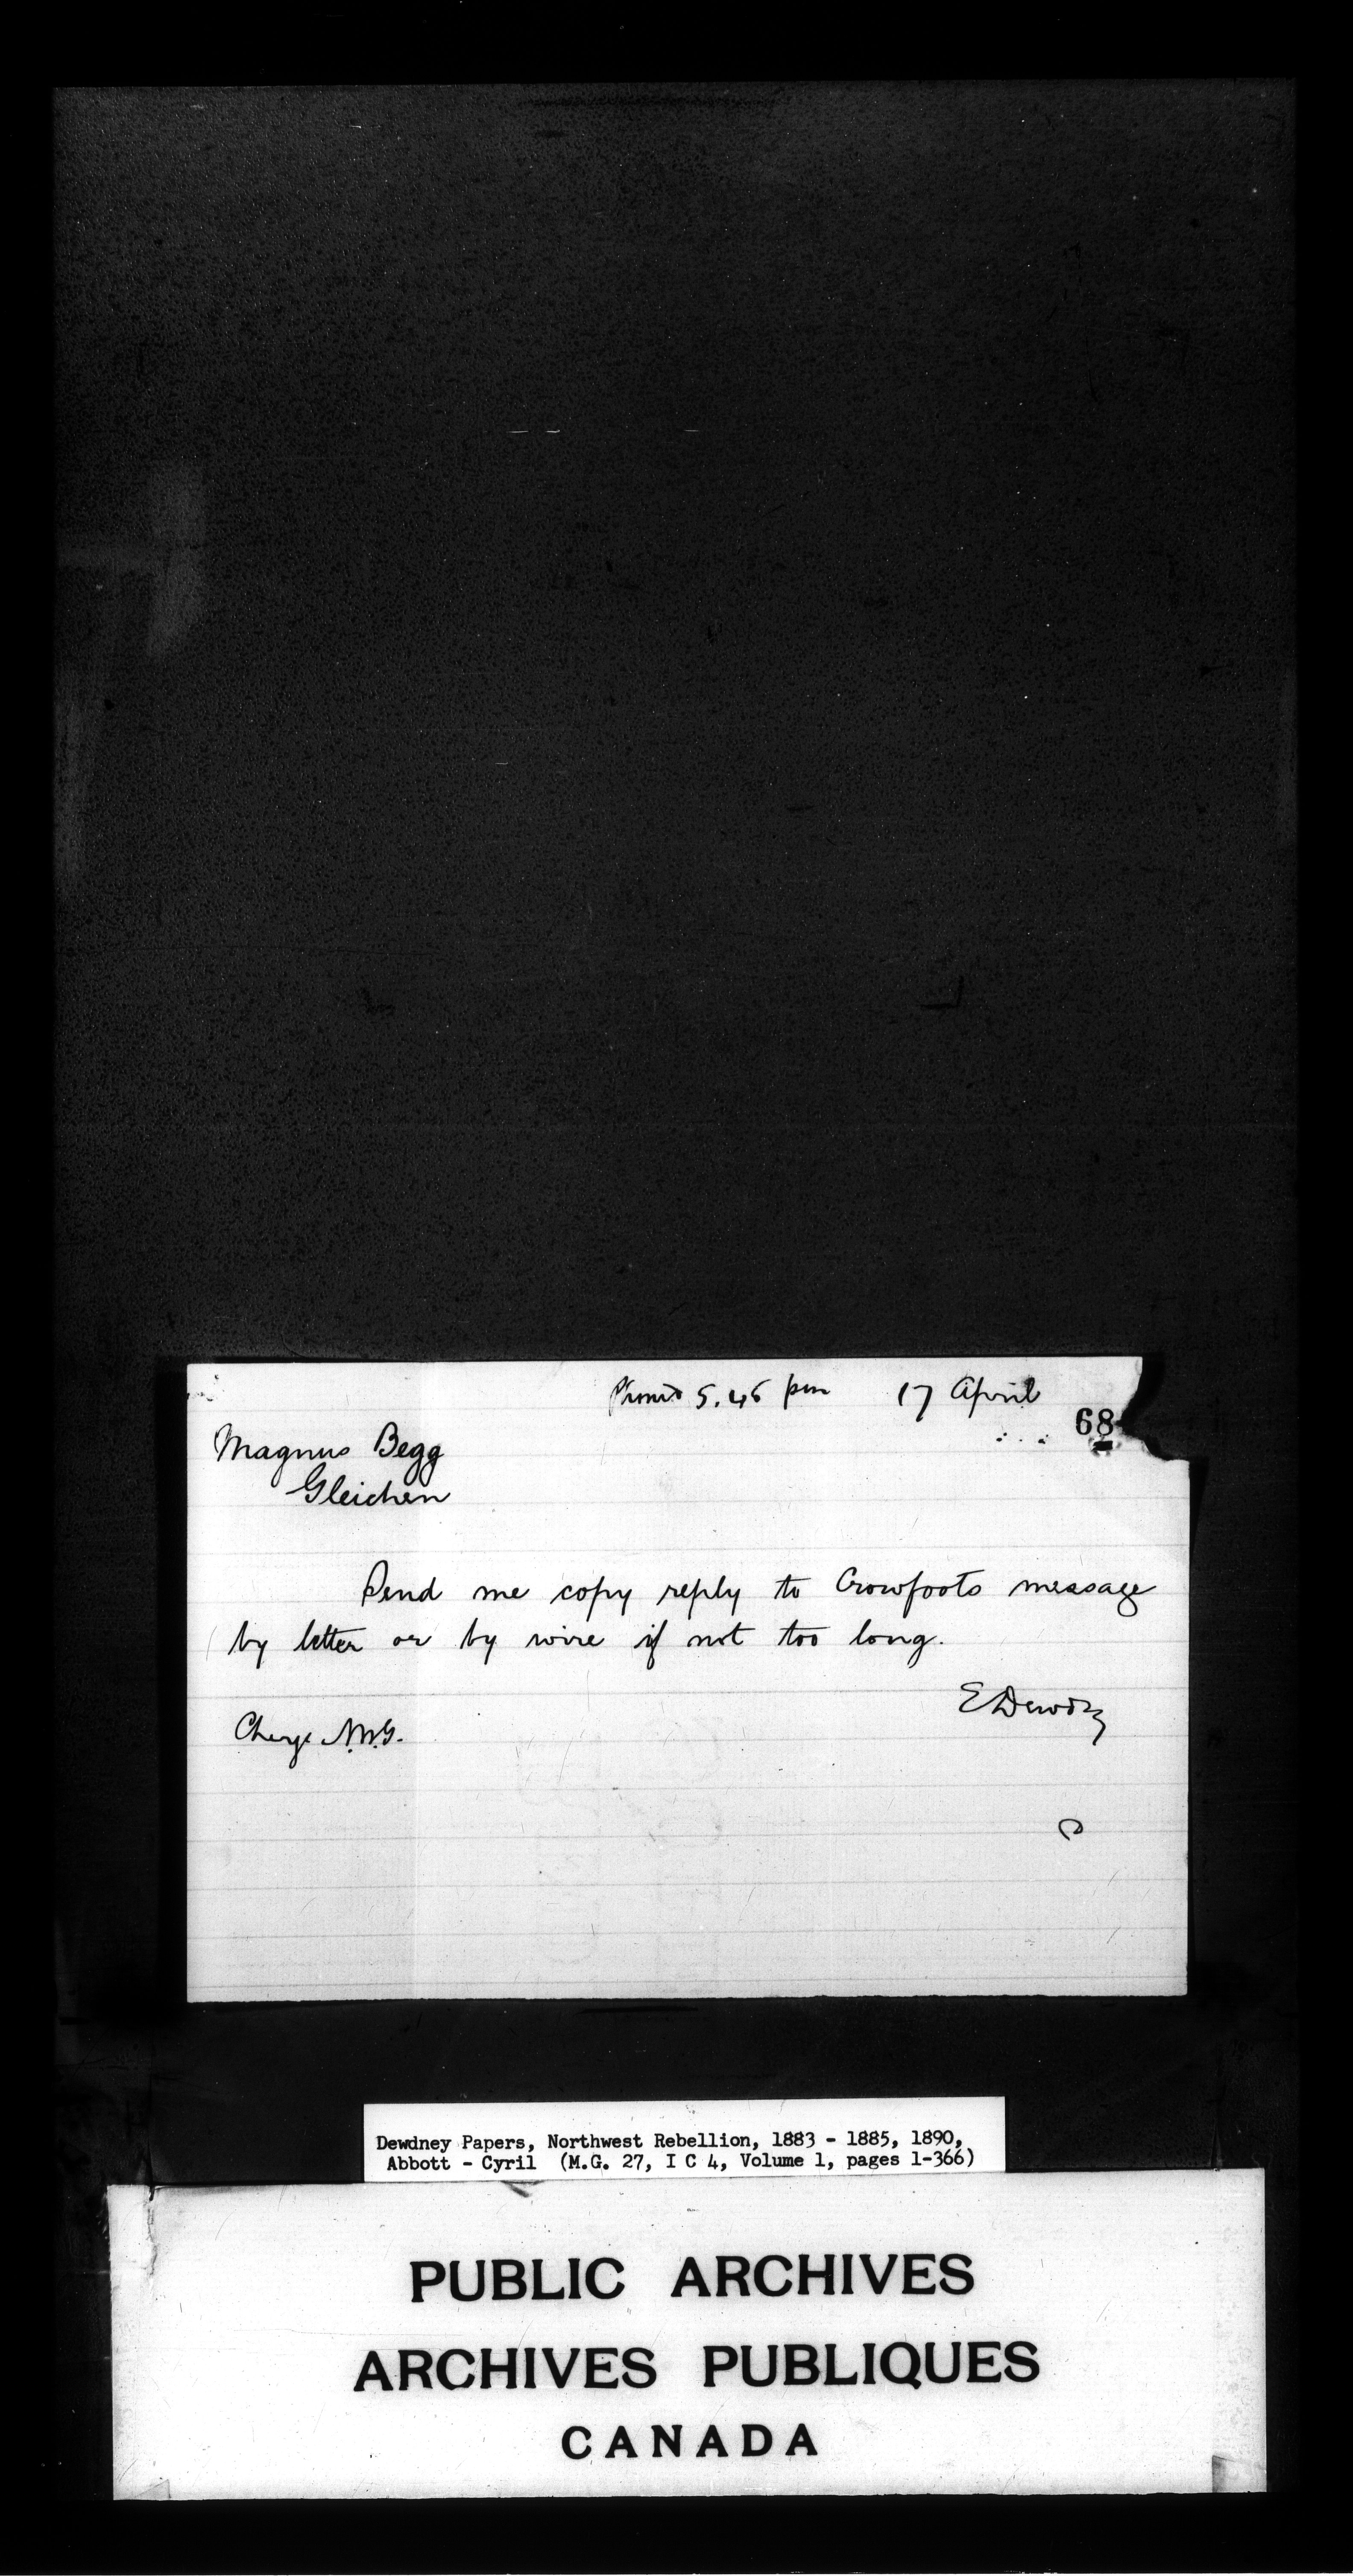 5.45 pm 17 April
68
Magnus Begg
Gleichen
Send me copy reply to Crowfoots message
by letter or by wire if not too long.
E Dewdney
Charge N.W.G.
Dewdney Papers, Northwest Rebellion, 1883 - 1885, 1890,
Abbott - Cyril (M.G. 27, I C 4, Volume 1, pages 1-366)
PUBLIC ARCHIVES
ARCHIVES PUBLIQUES
CANADA